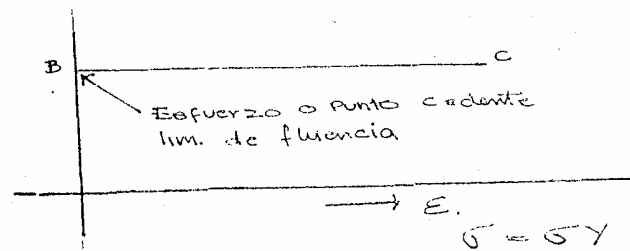 B C
Esfuerzo o Punto cedente
lim. de fluencia
→ ε.
σ = σY